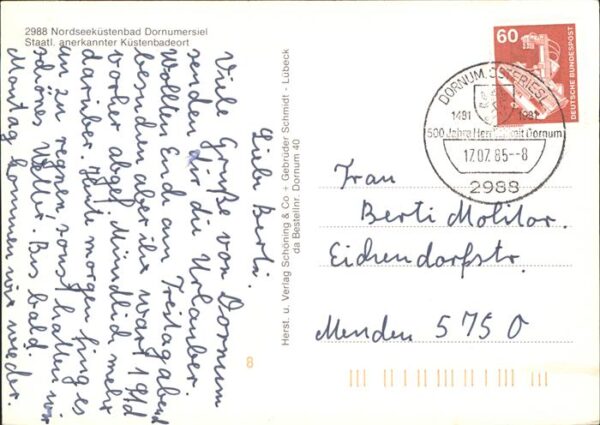 2988 Nordseeküstenbad Dornumersiel
Staatl. anerkannter Küstenbadeort
Liebe Berti.
Viele Grüße von Dornum
senden dir die Urlauber.
Wollten Euch am Freitagabend
besuchen aber ihr wart
vorher abgef. Mündlich mehr
darüber. Heute morgen fing es
an zu regnen sonst hatten wir
schönes Wetter! Bis bald.
Montag kommen wir wieder.
Herst. u. Verlag Schöning & Co + Gebrüder Schmidt - Lübeck
da Bestellnr. Dornum 40
8
60
DEUTSCHE BUNDESPOST
DORNUM, OSTFRIESL
1481 1981
500 Jahre Herrlichkeit Dornum
17.07.85--8
2988
Frau
Berti Molitor.
Eichendorfstr.
Menden 5750